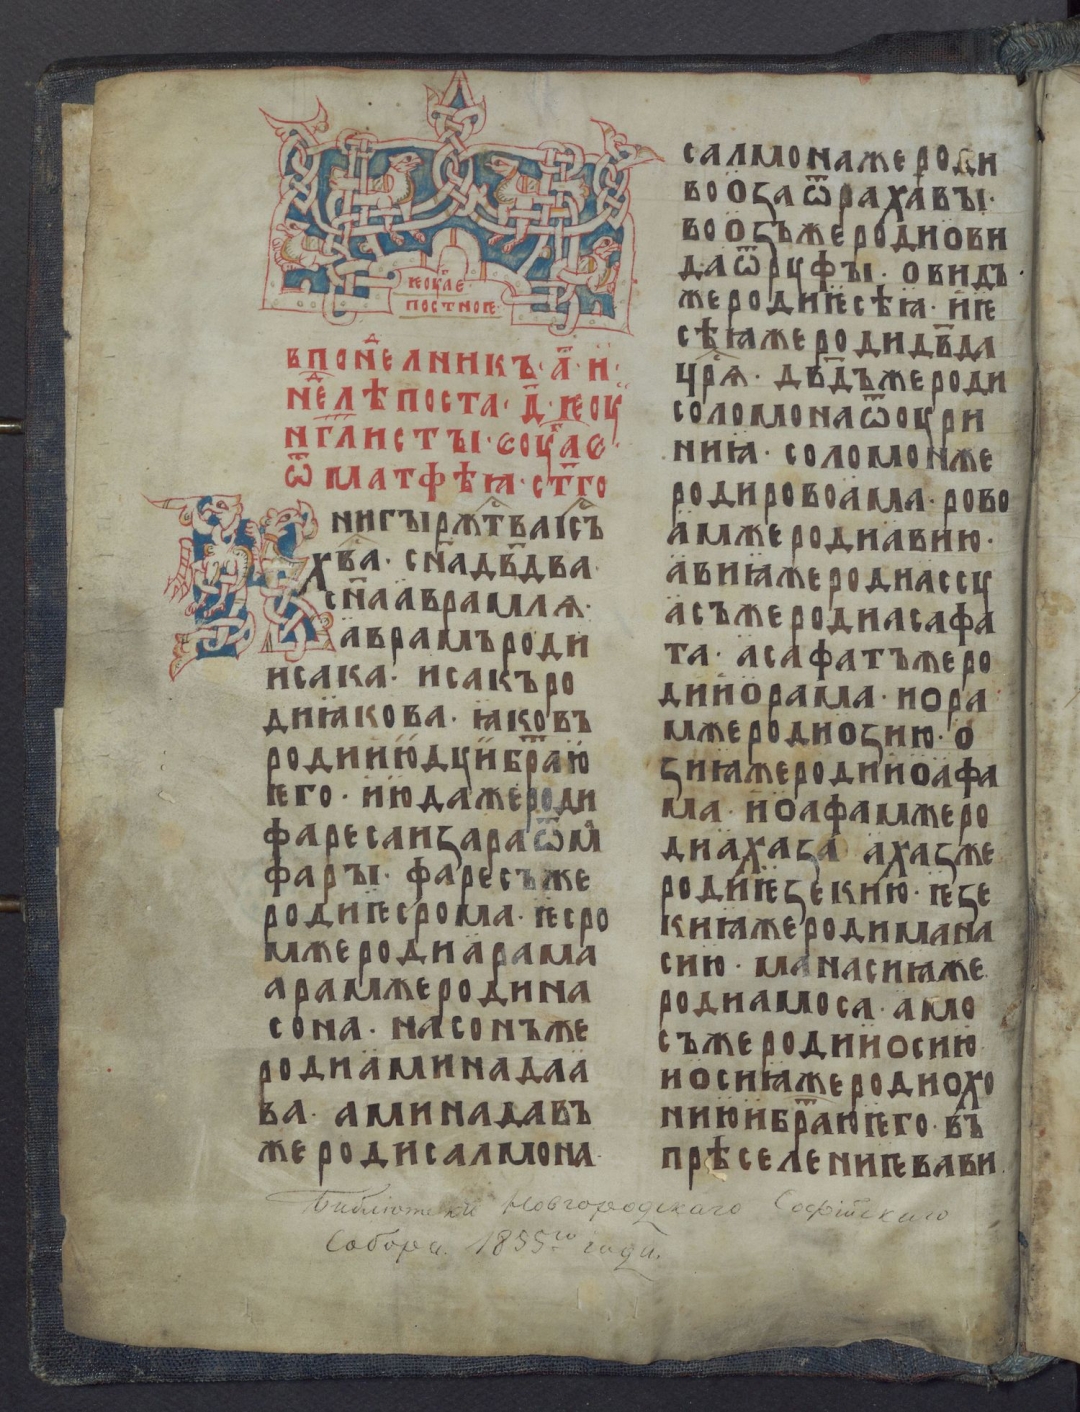 ѥѵⷢ҇лѥ
постноѥ
в понⷣелникъ · а҃ · и ·
нⷣелѣ поста · д҃ · ѥоу
нг҃листы · ѥоуⷢ҇аѥ ·
ѿ матфѣꙗ · ст҃го
Книгы рⷭжтва іс҃ъ
хв҃а · сн҃а дв҃два
сн҃а аврамлѧ ·
аврамъ роди
исака · исакъ ро
ди ꙗкова · ꙗковъ
роди июдꙋ и бр҃аю
ѥго · июда же роди
фареса и зара ѿ ѳⷨа
фары · фаресъ же
роди ѥсрома · ѥсро
мже роди арама
арамже роди на
сона · насонъ же
роди аминадаа
ва · аминадавъ
же роди салмона
салмона же роди
вооза ѿ рахавы ·
воозъ же роди ови
да ѿ руфы · овидъ
же роди ѥсѣꙗ · иѥ
сѣꙗ же роди дв҃да
црⷭѧ · дв҃дъ же роди
соломона ѿ оури
ниꙗ · соломонже
роди ровоама · рово
амже роди авию ·
авиꙗже роди ассу
асъже роди асафа
та · асафатъже ро
ди иорама · иора
мже роди озию · о
зиꙗже роди иоафа
ма · иоафамже ро
ди ахаза ахазже
роди ѥзекию · ѥзе
киꙗже роди мана
сию · манасиꙗже
роди амоса · амо
съже роди иосию
иосиꙗже роди охо
нию и бр҃аю ѥго · въ
прѣселениѥ вави
Библіотеки Новгородскаго Софійскаго
Собора. 1855го года.